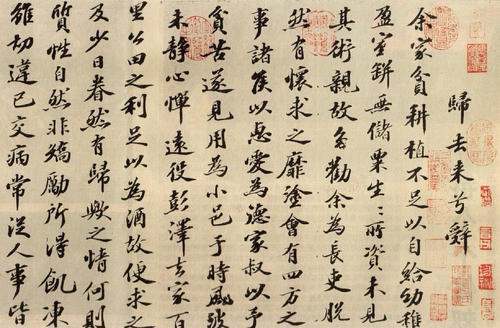 歸去来兮辭
余家貧耕植不足以自給幼稚
盈室缾無儲粟生々所資未見
其術親故多勸余為長吏脫
然有懷求之靡塗會有四方之
事諸侯以惠愛為德家叔以予
貧苦遂見用為小邑于時風波
未静心憚遠役彭澤去家百
里公田之利足以為酒故便求之
及少日眷然有歸歟之情何則
質性自然非矯勵所淂飢凍
雖切違己交病常從人事皆